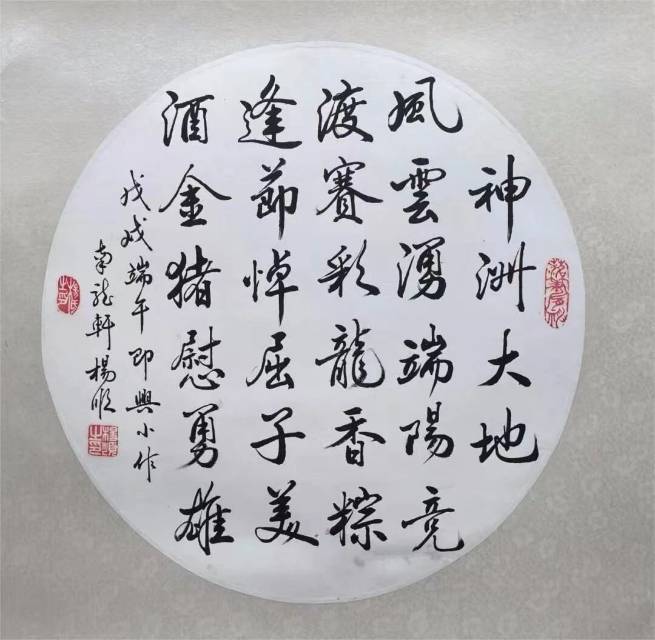 神洲大地
風雲湧端陽竞
渡賽彩龍香粽
逢節悼屈子美
酒金猪慰勇雄
戊戌端午即興小作
南龙軒楊順